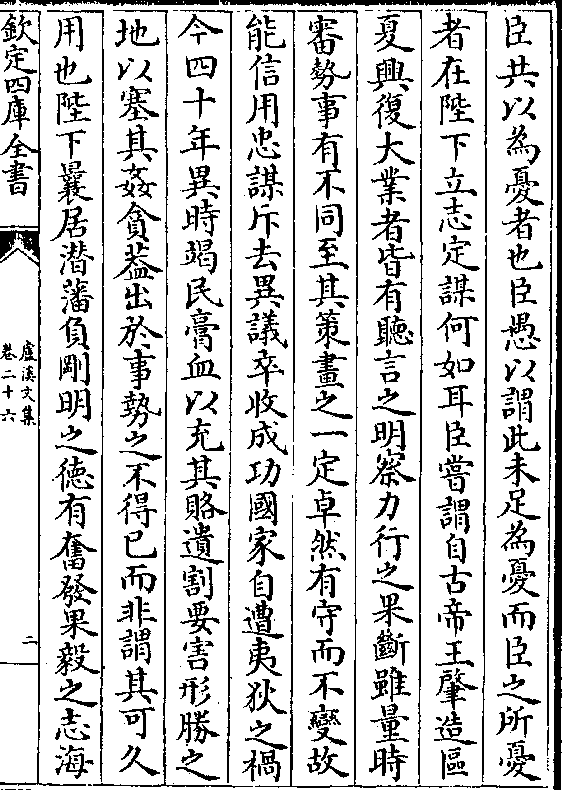 臣共以為憂者也臣愚以謂此未足為憂而臣之所憂
者在陛下立志定謀何如耳臣嘗謂自古帝王肇造區
夏興復大業者皆有聽言之明察力行之果斷雖量時
審勢事有不同至其策畫之一定卓然有守而不變故
能信用忠謀斥去異議卒收成功國家自遭夷狄之禍
今四十年異時竭民膏血以充其賂遺割要害形勝之
地以塞其姦貪葢出於事勢之不得已而非謂其可久
用也陛下曩居潜藩負剛明之徳有奮發果毅之志海
欽定四庫全書
盧溪文集
卷二十六
二